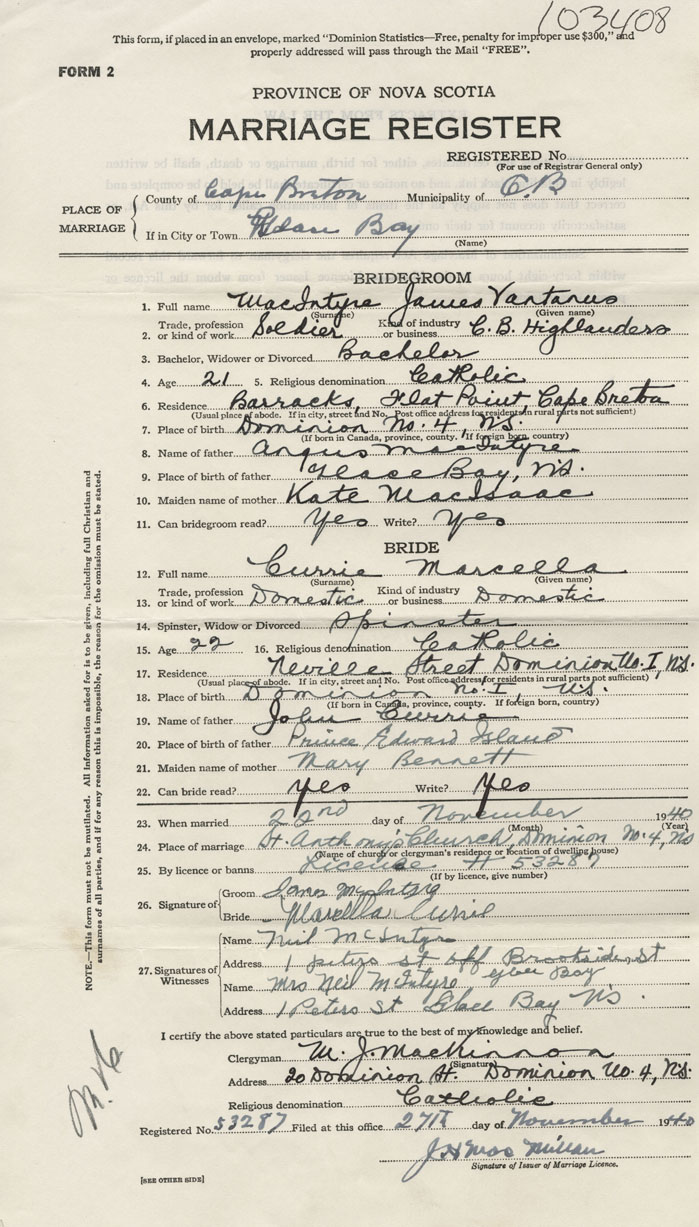 103408
This form, if placed in an envelope, marked "Dominion Statistics—Free, penalty for improper use $300," and
properly addressed will pass through the Mail "FREE".
FORM 2
PROVINCE OF NOVA SCOTIA
MARRIAGE REGISTER
REGISTERED No.
(For use of Registrar General only)
PLACE OF MARRIAGE
County of Cape Breton Municipality of C.B
If in City or Town Glace Bay
(Name)
BRIDEGROOM
1. Full name MacIntyre James
(Surname) (Given name)
2. Trade, profession or kind of work Soldier Kind of industry or business C.B. Highlanders
3. Bachelor, Widower or Divorced Bachelor
4. Age 21 5. Religious denomination Catholic
6. Residence Barracks, Flat Point, Cape Breton
(Usual place of abode. If in city, street and No. Post office address for residents in rural parts not sufficient)
7. Place of birth Dominion No. 4, N.S.
(If born in Canada, province, county. If foreign born, country)
8. Name of father Angus MacIntyre
9. Place of birth of father Glace Bay, N.S.
10. Maiden name of mother Kate MacIsaac
11. Can bridegroom read? Yes Write? Yes
BRIDE
12. Full name Currie Marcella
(Surname) (Given name)
13. Trade, profession or kind of work Domestic Kind of industry or business Domestic
14. Spinster, Widow or Divorced Spinster
15. Age 22 16. Religious denomination Catholic
17. Residence Neville Street Dominion No. I, N.S.
(Usual place of abode. If in city, street and No. Post office address for residents in rural parts not sufficient)
18. Place of birth Dominion No. I, N.S.
(If born in Canada, province, county. If foreign born, country)
19. Name of father John Currie
20. Place of birth of father Prince Edward Island
21. Maiden name of mother Mary Bennett
22. Can bride read? Yes Write? Yes
23. When married 22nd day of November 1940
(Month) (Year)
24. Place of marriage St. Anthony's Church, Dominion No. 4, NS
(Name of church or clergyman's residence or location of dwelling house)
25. By licence or banns License # 53287
(If by licence, give number)
26. Signature of
Groom James McIntyre
Bride Marcella Currie
27. Signatures of Witnesses
Name Neil McIntyre
Address 1 Peters St off Brookside St
Glace Bay
Name Mrs Neil McIntyre
Address 1 Peters St Glace Bay NS
I certify the above stated particulars are true to the best of my knowledge and belief.
Clergyman M. J. MacKinnon
(Signature)
Address 20 Dominion St. Dominion No. 4, N.S.
Religious denomination Catholic
Registered No. 53287 Filed at this office 27th day of November 1940
Signature of Issuer of Marriage Licence.
[SEE OTHER SIDE]
NOTE.—This form must not be mutilated. All information asked for is to be given, including full Christian and
surnames of all parties, and if for any reason this is impossible, the reason for the omission must be stated.